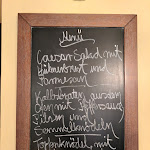 Menü
Caesar Salad mit
Hühnerbrust und
Parmesan
aus dem
Ofen mit
und
Semmelknödeln
Topfenknödel mit